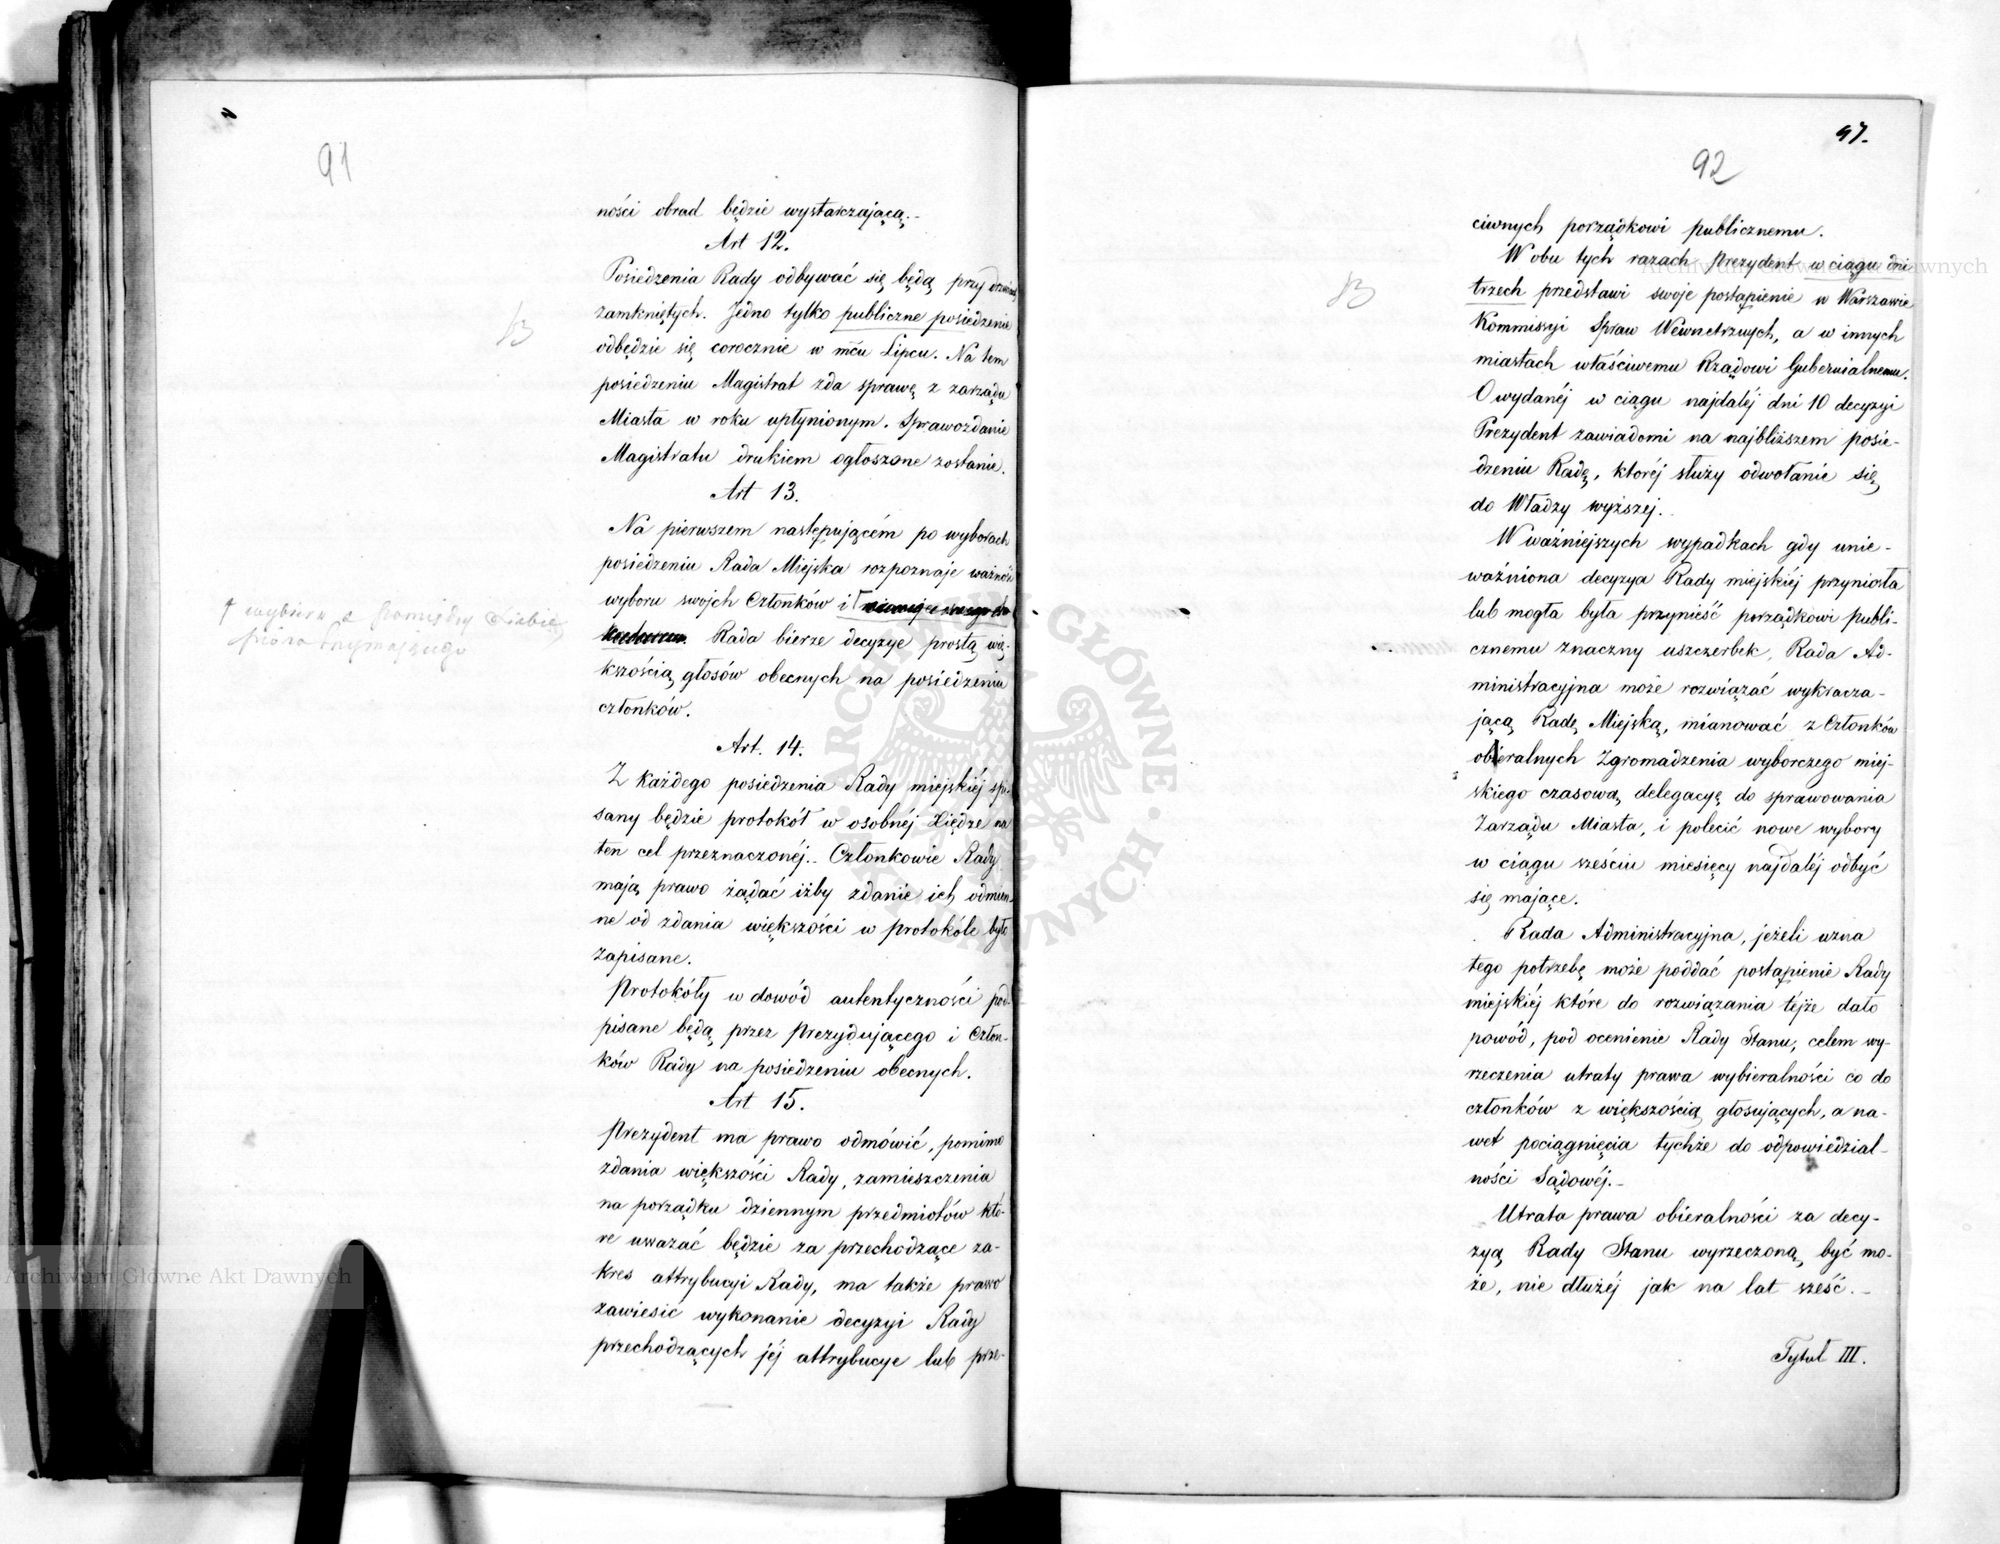 91
ności obrad będzie wystarczającą.-
Art 12.
Posiedzenia Rady odbywać się będą przy drzwiach
zamkniętych. Jedno tylko publiczne posiedzenie
odbędzie się corocznie w mcu Lipcu. Na tem
posiedzeniu Magistrat zda sprawę z zarządu
Miasta w roku upłynionym. Sprawozdanie
Magistratu drukiem ogłoszone zostanie.
Art 13.
Na pierwszem następującém po wyborach
posiedzeniu Rada Miejska rozpoznaje ważność
wyboru swojch Członków i
Rada bierze decyzye prostą wię-
kszością głosów obecnych na posiedzeniu
członków.
wybiera z pomiędzy siebie
pióro trzymającego
Art. 14.
Z każdego posiedzenia Rady miejskiéj spi-
sany będzie protokół w osobnéj Xiędze na
ten cel przeznaczonéj.- Członkowie Rady
mają prawo żądać iżby zdanie ich odmien-
ne od zdania większości w protokóle było
zapisane.
Protokóły w dowód autentyczności pod-
pisane będą przez Prezydującego i Człon-
ków Rady na posiedzeniu obecnych.
Art 15.
Prezydent ma prawo odmówić, pomimo
zdania większości Rady, zamieszczenia
na porządku dziennym przedmiotów któ-
re uważać będzie za przechodzące za-
kres attrybucyi Rady, ma także prawo
zawiesić wykonanie decyzyi Rady
przechodzących jéj attrybucye lub prze-
47.
92
ciwnych porządkowi publicznemu.
W obu tych razach Prezydent w ciągu dni
trzech przedstawi swoje postąpienie w Warszawie
Kommissyi Spraw Wewnetrznych, a w innych
miastach właściwemu Rządowi Gubernialnemu.
O wydanéj w ciągu najdaléj dni 10 decyzyi
Prezydent zawiadomi na najbliższem posie-
dzeniu Radę, któréj służy odwołanie się
do Władzy wyższej.
W ważniejszych wypadkach gdy unie-
ważniona decyzya Rady miejskiéj przyniosła
lub mogła była przynieść porządkowi publi-
cznemu znaczny uszczerbek, Rada Ad-
ministracyjna może rozwiązać wykracza-
jącą Radę Miejską, mianować z Członków
obieralnych Zgromadzenia wyborczego miej-
skiego czasową delegacyę do sprawowania
Zarządu Miasta, i polecić nowe wybory
w ciągu sześciu miesięcy najdaléj odbyć
się mające.
Rada Administracyjna, jeżeli uzna
tego potrzebę może poddać postąpienie Rady
miejskiéj które do rozwiązania téjże dało
powód, pod ocenienie Rady Stanu, celem wy-
rzeczenia utraty prawa wybieralności co do
członków z większością głosujących, a na-
wet pociągnięcia tychże do odpowiedzial-
ności Sądowéj.-
Utrata prawa obieralności za decy-
zyą Rady Stanu wyrzeczoną być mo-
że, nie dłużéj jak na lat sześć.-
Tytuł III.
Archiwum Główne Akt Dawnych
Archiwum Główne Akt Dawnych
ARCHIWUM GŁÓWNE AKT DAWNYCH